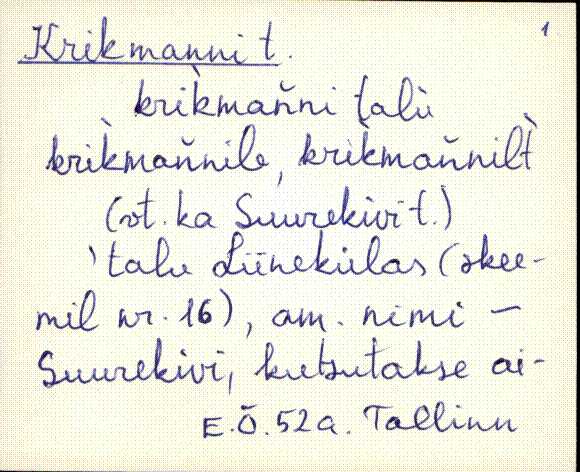 1
Krikmanni t.
krìkmaňni talù
krìkmaňnile, krìkmaňnilt̀
(vt. ka Suurekivi t.)
'talu Liineküłas (skee-
mil nr. 16), am. nimi —
Suurekivi, kutsutakse ai-
E.Õ. 52a. Tallinn